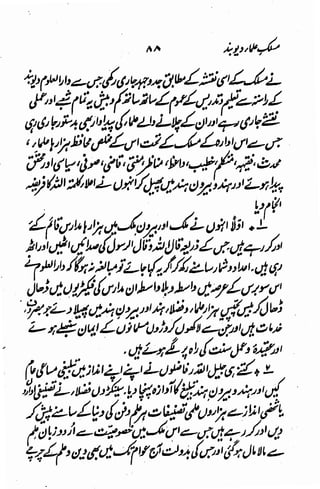 مسلک علماء دیوبند ۸۸
نے مسلک کے اسی نقشہ کے مطابق جدوجہد جاری رکھی جس سے دارالعلوم دیوبند
کے راستہ سے تعلیم و تدریس کے عموم کے ساتھ ساتھ کم و بیش یہ تمام شعبے اور عملی
نقشے جاری رہے اور ان کے چلانے والے علماء کی پیداوار بھی بدستور جاری رہی
جس سے اس ادارہ کے مسلک کے تحت اس کے مخلص محافظ ہزارہا علماء،
محدث، فقیہہ، متکلم، خطیب، واعظ، مناظر، مفتی، قاضی، صوفی، سیاسی اور محقق
پیدا ہوئے اور ہند و بیرون ہند میں پھیل کر انہوں نے اعلاء کلمۃ اللہ کا فریضہ
انجام دیا
۱۔ اولاً انہوں نے ملک اور بیرون ملک میں ہزارہا مدارس قائم کئے
اور کر رہے ہیں جس کے ذریعہ قال اللہ و قال الرسول کی صدائیں اٹھیں اور اٹھ
رہی ہیں۔ اعداد و شمار سامنے رکھ کر اگر یہ کہا جائے تو مبالغہ نہ ہوگا کہ دارالعلوم نے
اس سو برس کے عرصہ میں بواسطہ و بلا واسطہ ان مدارس کی فیکٹریوں میں ڈھال
ڈھال کر بیس پچیس ہزار علماء و فضلاء ہند اور بیرون ہند میں پھیلا دیے جو مصروف
خدمات ہیں اور جن سے لاکھوں کروڑوں مسلمانوں کے ایمان سنبھلے ہوئے
اور عقیدۂ و عمل سنت کی راہ پر لگے ہوئے ہیں۔
۲۔ کتنے ہی جلیل القدر فاضلوں نے اپنے اپنے انداز میں تبلیغی مساعی عام
کیں اور ہند و بیرون ہند تبلیغ کا آوازہ پہنچا دیا۔ سینکڑوں فضلاء نے تصنیفی اداروں
یا شخصی انداز سے ہزاروں علمی تصنیفات ہر علم و فن کی دنیا کے سامنے پیش کر
دیں اور کر رہے ہیں جس سے اس ملک میں خصوصیت سے اردو زبان علم
سے مالا مال ہوگئی اور جس کی بدولت آج عوام تک میں بھی دین و علم کے چرچے